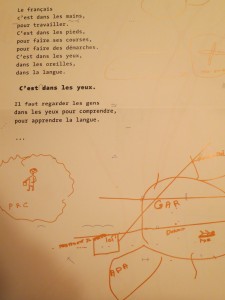 Le français
c'est dans les mains,
pour travailler.
C'est dans les pieds,
pour faire ses courses,
pour faire des démarches.
C'est dans les yeux,
dans les oreilles,
dans la langue.
C'est dans les yeux.
Il faut regarder les gens
dans les yeux pour comprendre,
pour apprendre la langue.
...
PAC
GAR
ADA